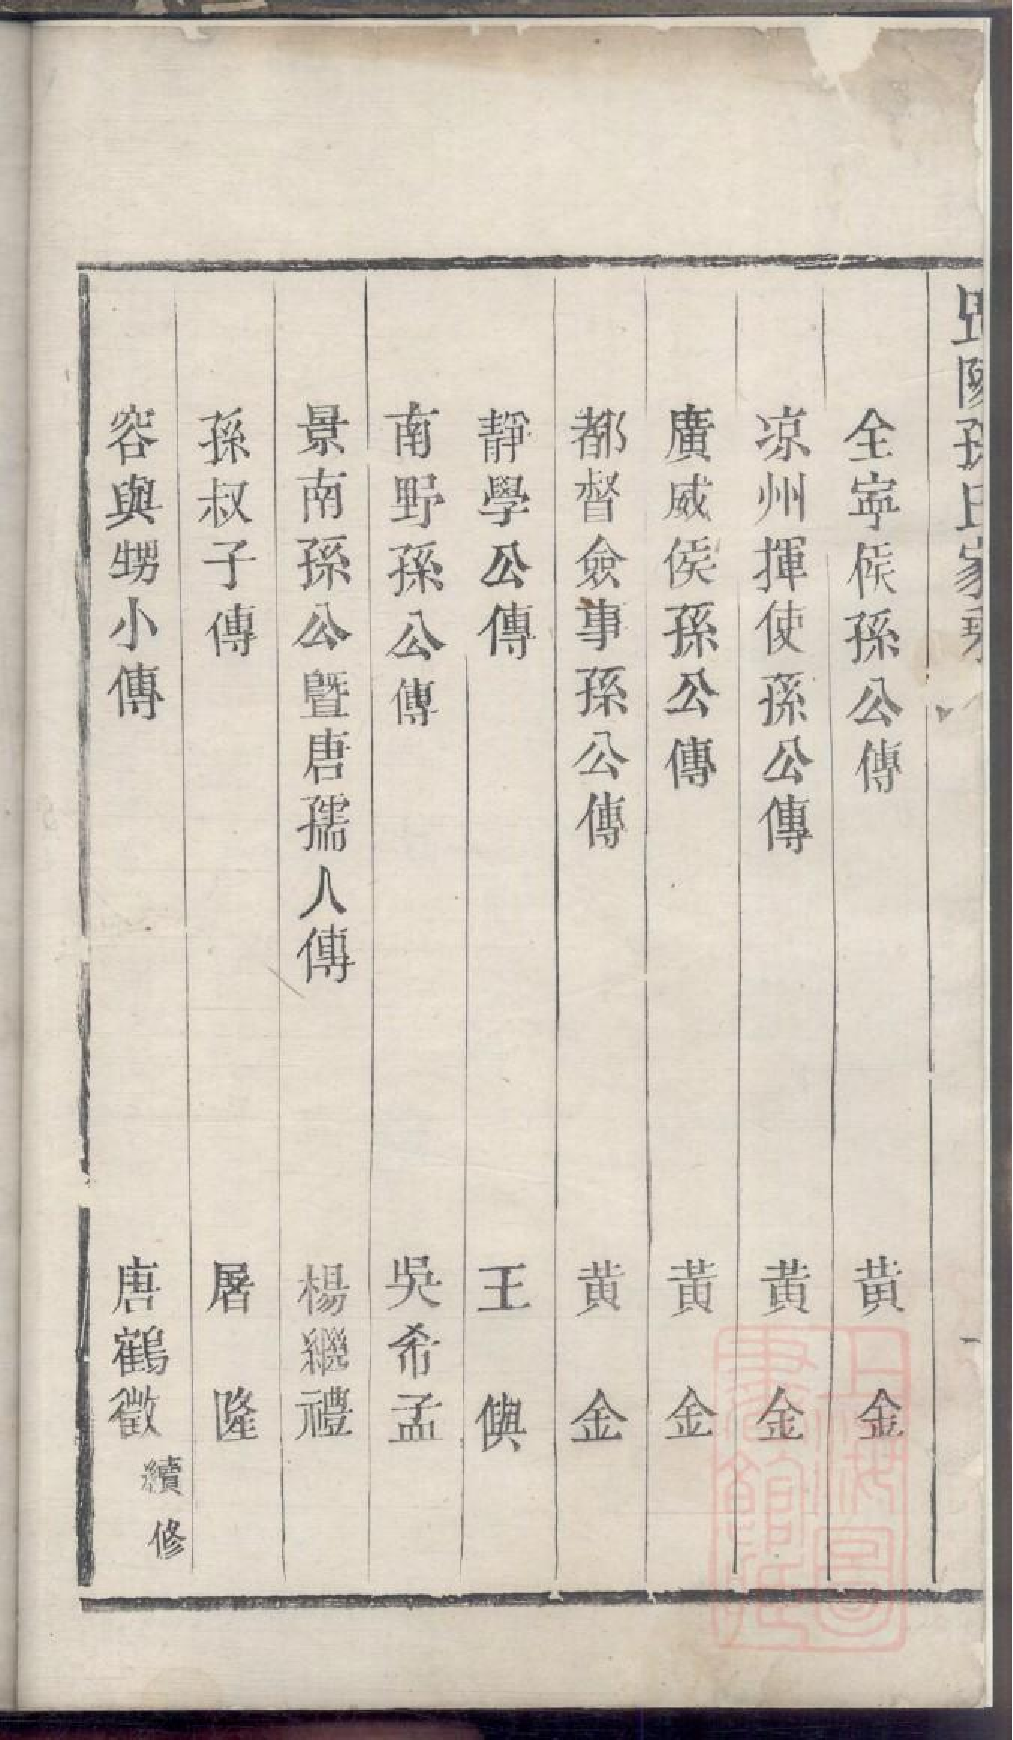 毘陵孫氏家乘
一
全寧侯孫公傳 黃金
凉州揮使孫公傳 黃金
廣威侯孫公傳 黃金
都督僉事孫公傳 黃金
靜學公傳 王㒜
南野孫公傳 吳希孟
景南孫公暨唐孺人傳 楊繼禮
孫叔子傳 屠隆
容與甥小傳 唐鶴徵 續修
上海圖書館藏